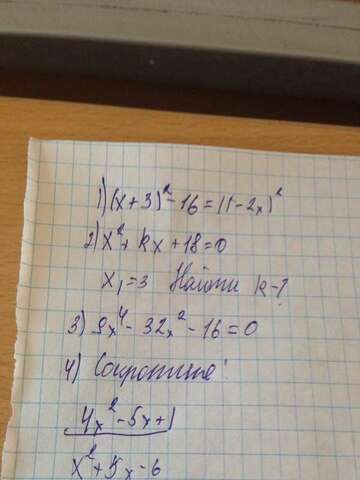 1) (x+3)² - 16 = (1-2x)²
2) x² + kx + 18 = 0
x₁ = 3 Найти k-?
3) 9x⁴ - 32x² - 16 = 0
4) Сократите:
4x² - 5x + 1
x² + 5x - 6